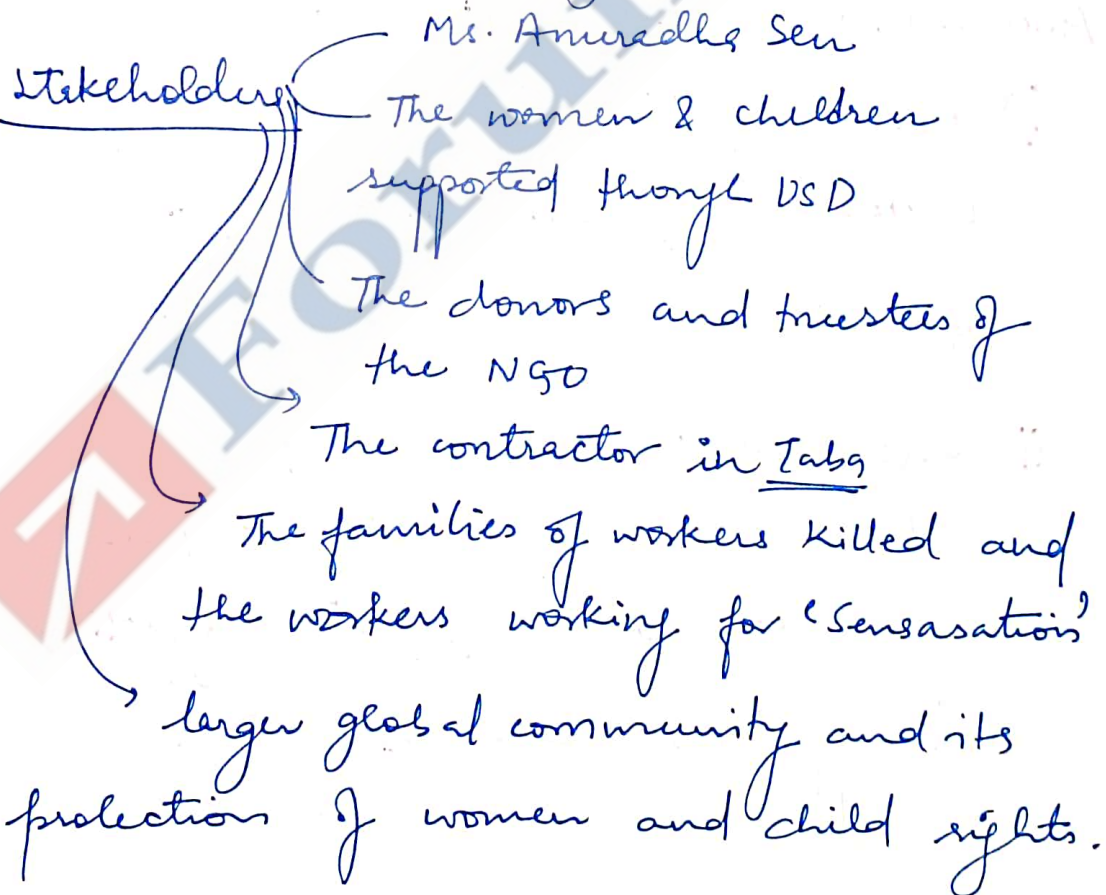 Ms. Anuradha Sen
Stakeholders
The women & children
supported through USD
The donors and trustees of
the NGO
The contractor in Taba
The families of workers killed and
the workers working for 'Sensasation'
larger global community and its
protection of women and child rights.
Forum